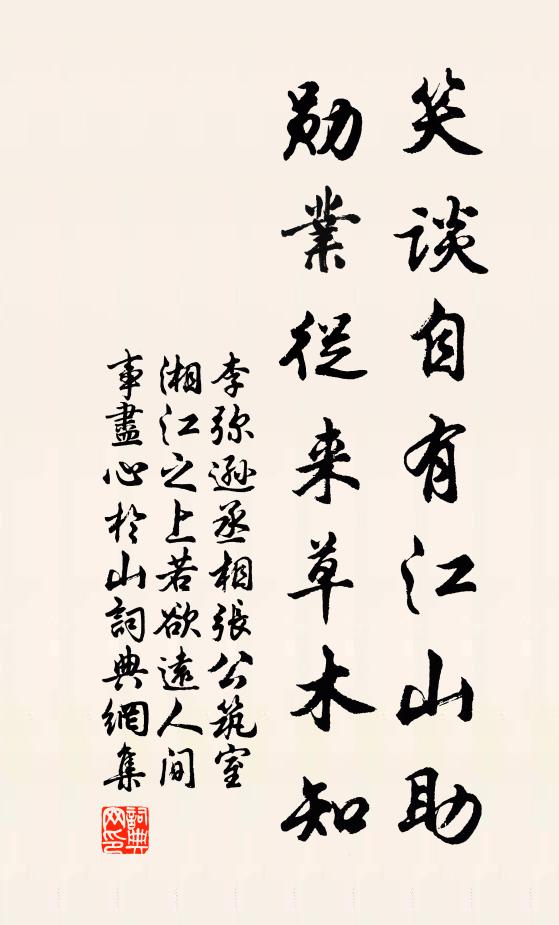 笑談自有江山助
勛業從来草木知
李弥遜丞相張公筑室
湘江之上若欲遠人间
事盡心於山詞典網集
詞典
网印